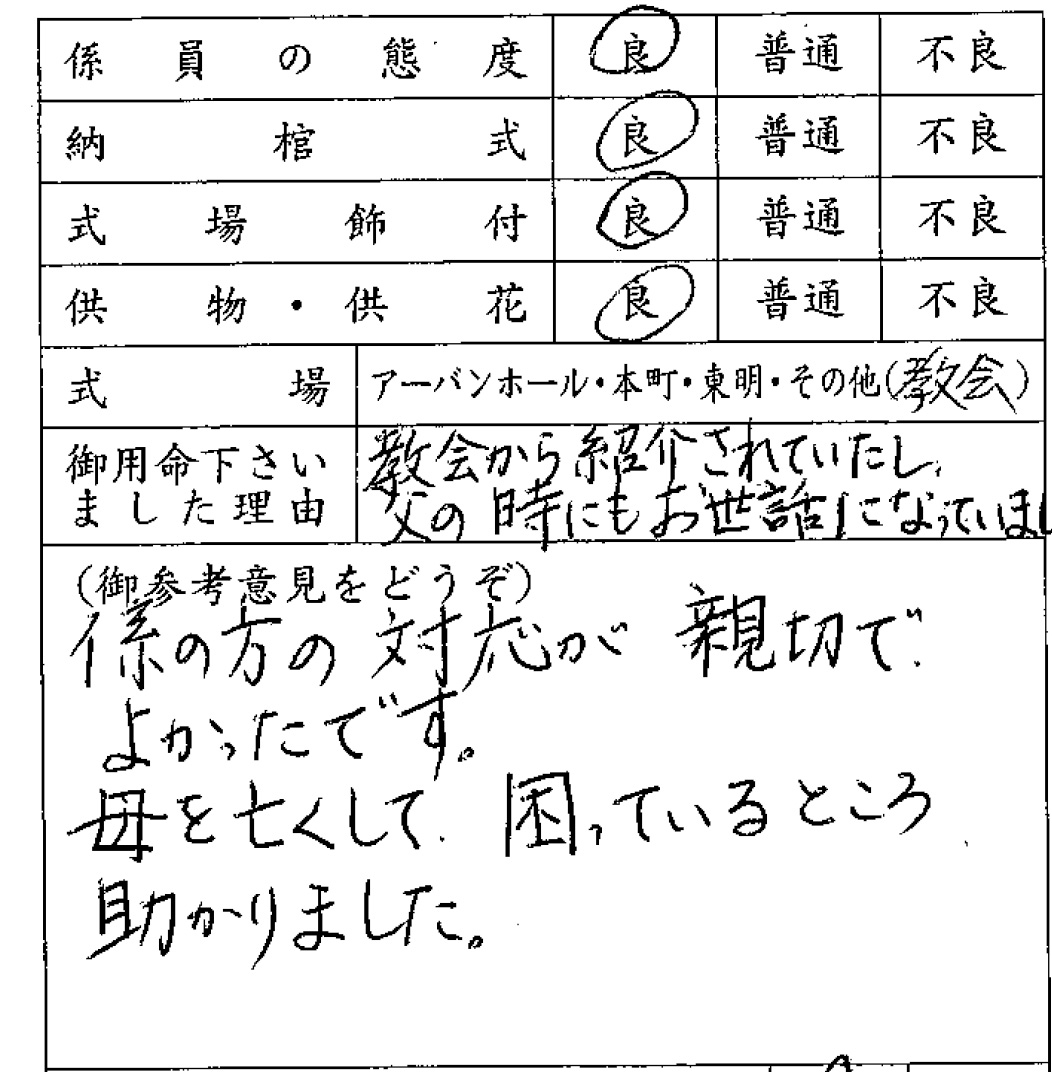 係員の態度 良 普通 不良
納棺式 良 普通 不良
式場飾付 良 普通 不良
供物・供花 良 普通 不良
式場 アーバンホール・本町・東明・その他(教会)
御用命下さい
ました理由
教会から紹介されていたし、
父の時にもお世話になっていまし
(御参考意見をどうぞ)
係の方の対応が親切で、
よかったです。
母を亡くして、困っているところ、
助かりました。